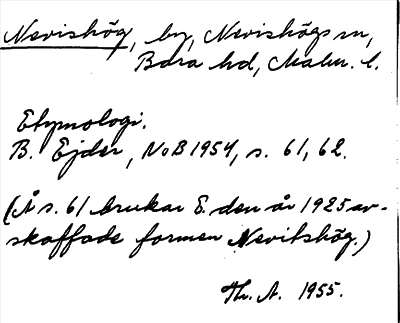 Nevishög, by, Nevishögs sn,
Bara hd, Malm. l.
Etymologi.
B. Ejder, NoB 1954, s. 61, 62.
(Å s. 61 brukar E. den år 1925 av-
skaffade formen Nevitshög.)
Th. A. 1955.